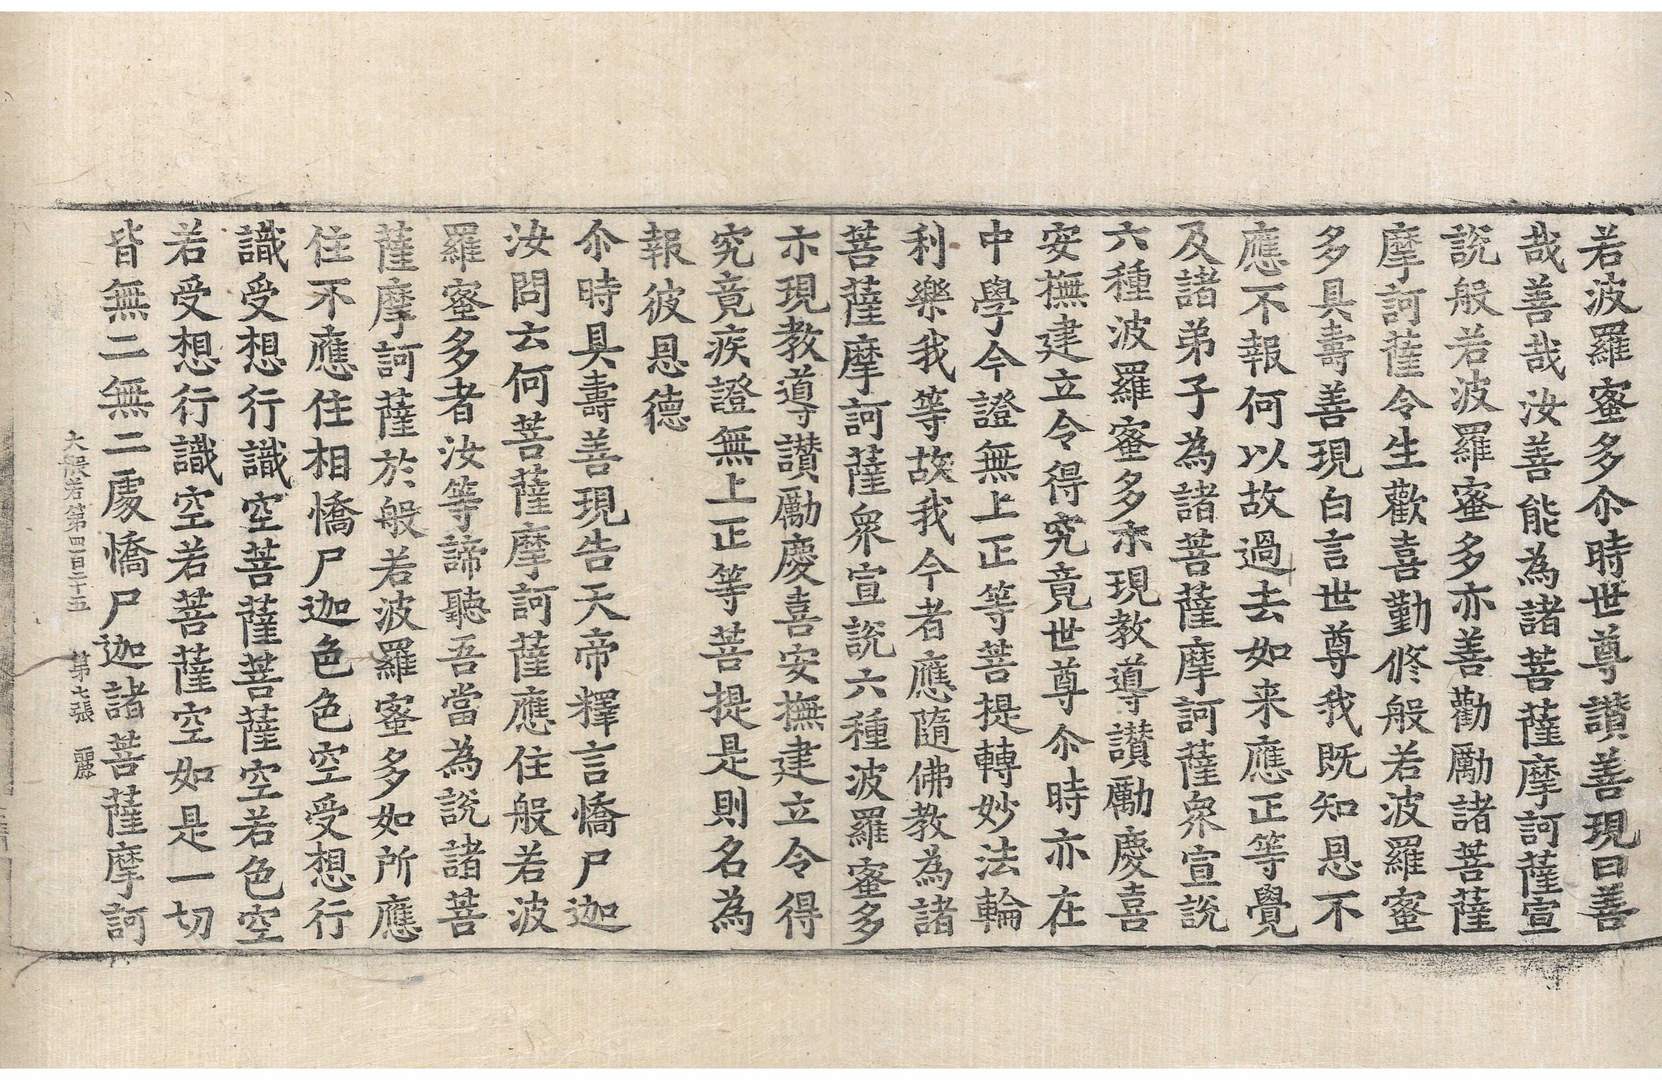 若波羅蜜多尒時世尊讃善現曰善
哉善哉汝善能為諸菩薩摩訶薩宣
說般若波羅蜜多亦善勸勵諸菩薩
摩訶薩令生歡喜勤修般若波羅蜜
多具壽善現白言世尊我既知恩不
應不報何以故過去如来應正等覺
及諸弟子為諸菩薩摩訶薩衆宣說
六種波羅蜜多示現教導讃勵慶喜
安撫建立令得究竟世尊尒時亦在
中學今證無上正等菩提轉妙法輪
利樂我等故我今者應隨佛教為諸
菩薩摩訶薩衆宣說六種波羅蜜多
示現教導讃勵慶喜安撫建立令得
究竟疾證無上正等菩提是則名為
報彼恩德
尒時具壽善現告天帝釋言憍尸迦
汝問云何菩薩摩訶薩應住般若波
羅蜜多者汝等諦聽吾當為說諸菩
薩摩訶薩於般若波羅蜜多如所應
住不應住相憍尸迦色色空受想行
識受想行識空菩薩菩薩空若色空
若受想行識空若菩薩空如是一切
皆無二無二處憍尸迦諸菩薩摩訶
大般若第四百二十五 第七張 麗